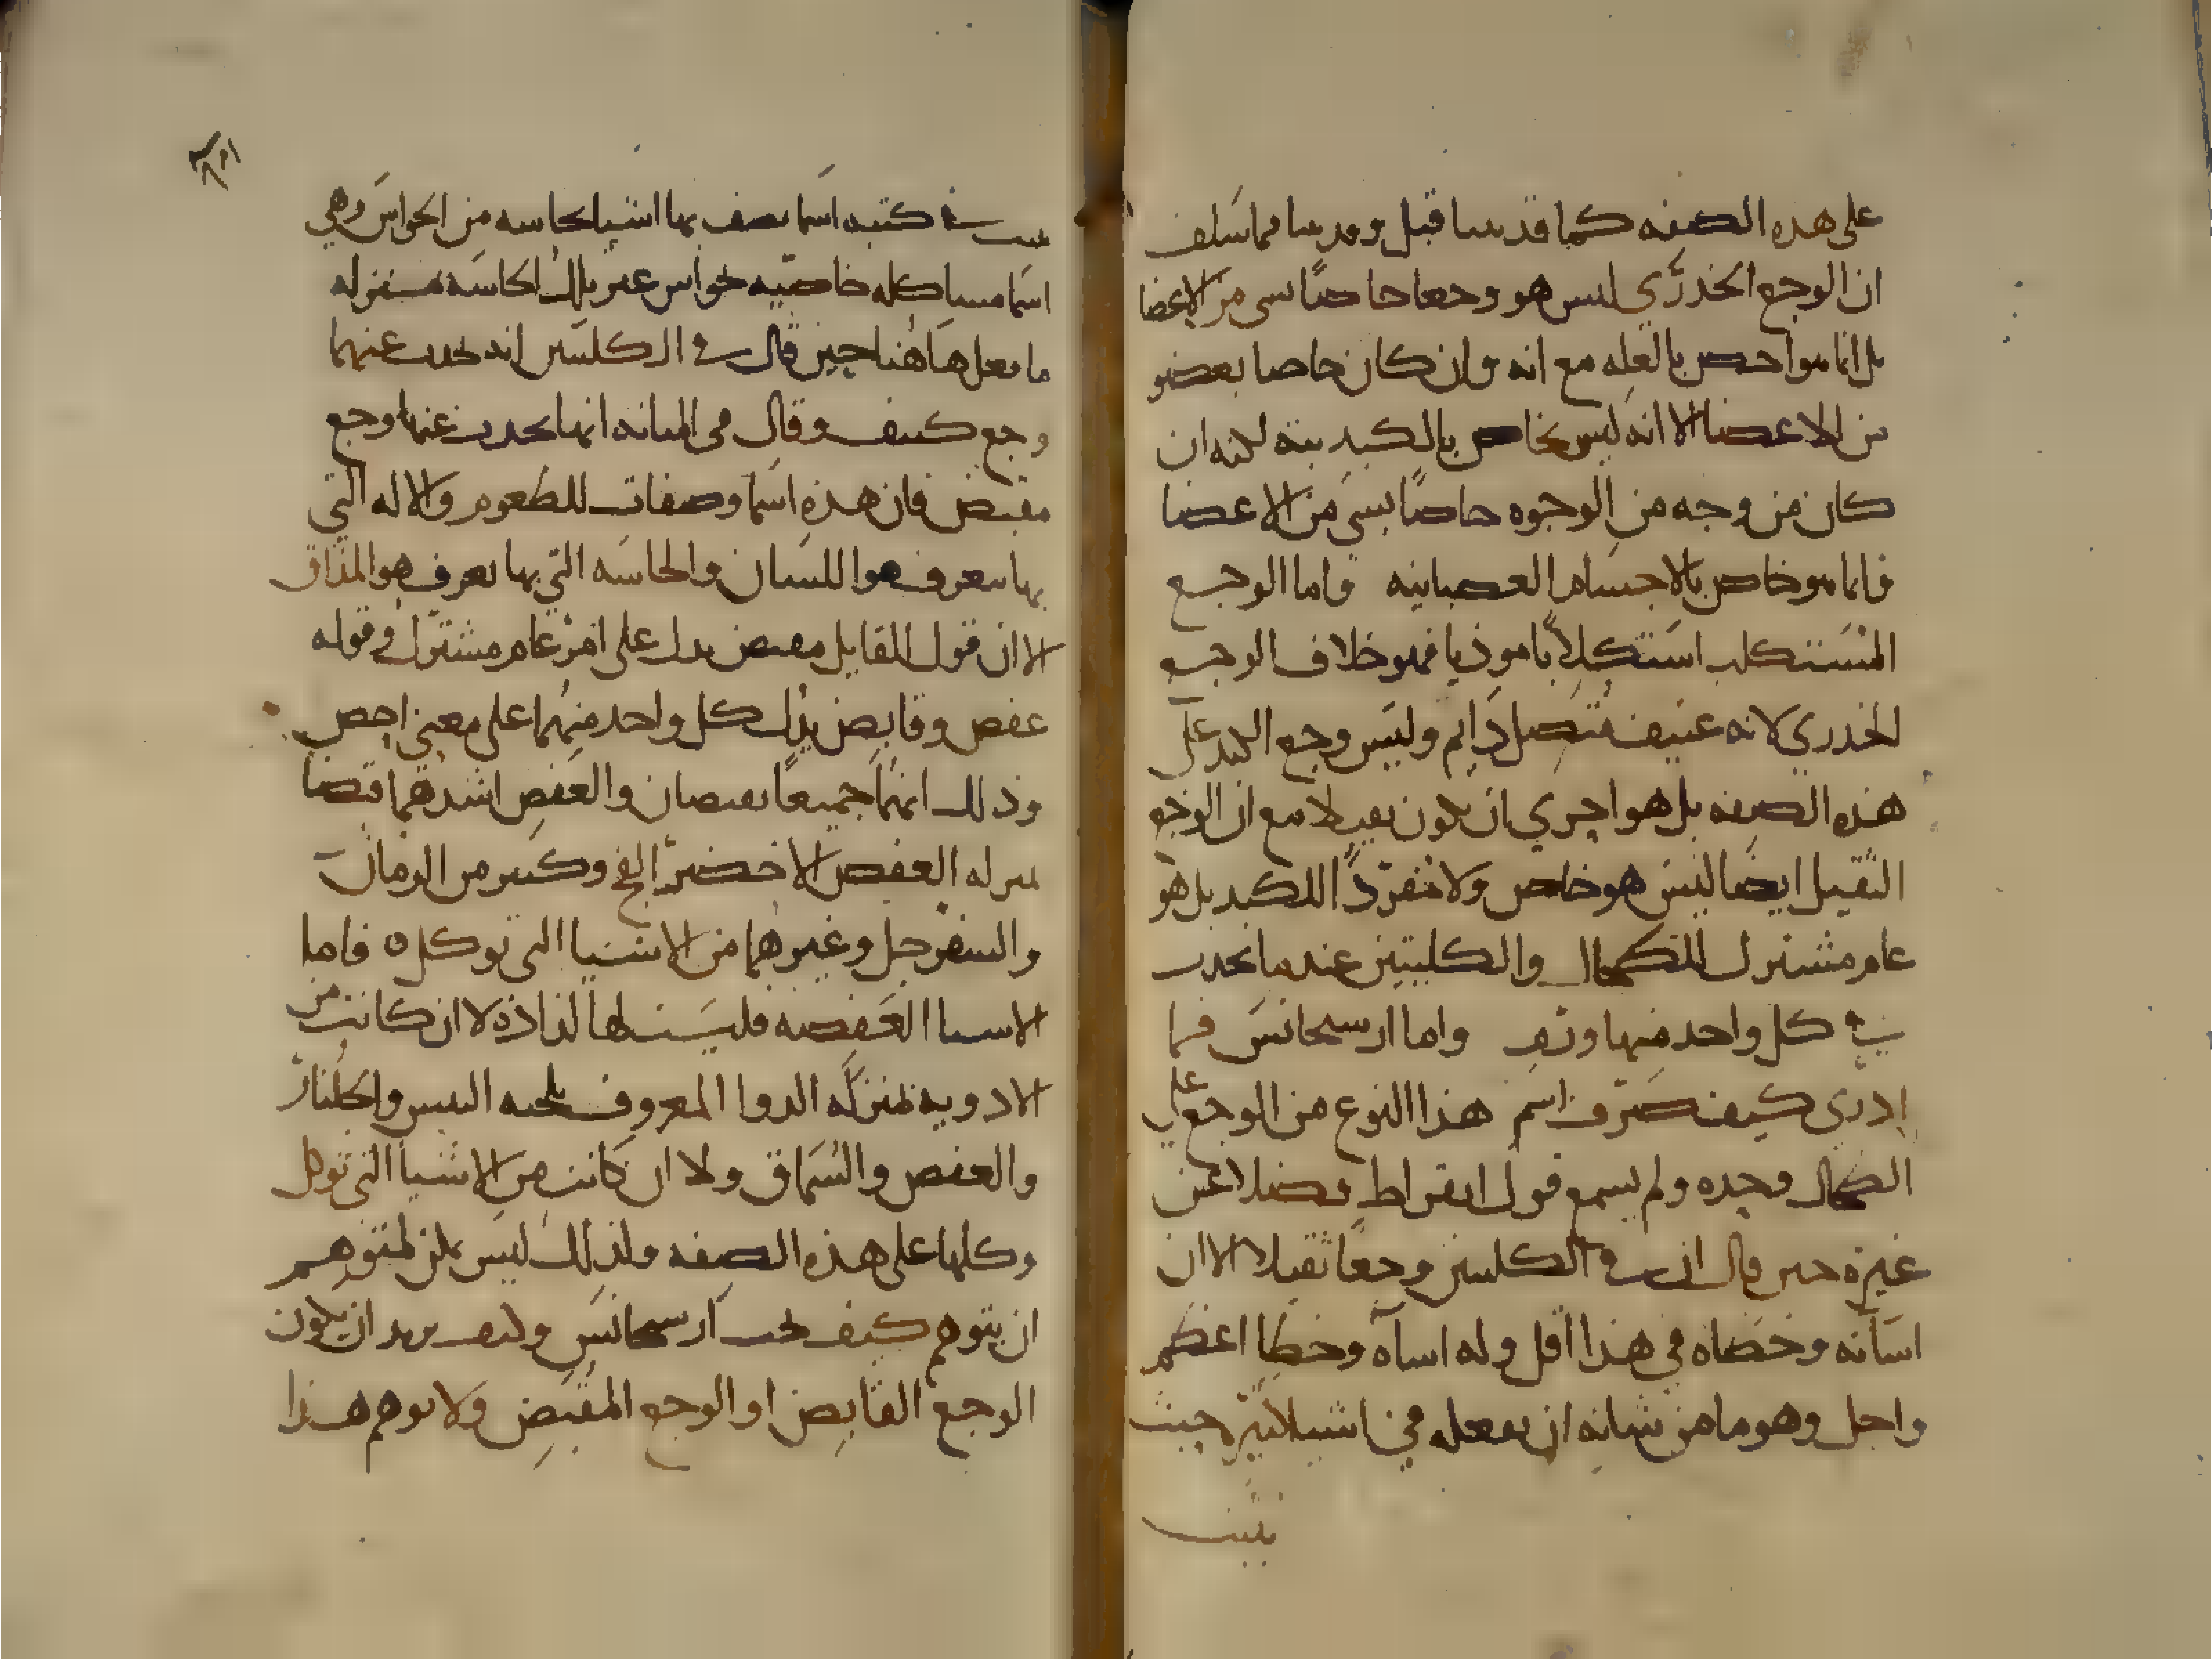 على هذه الصفه كما قد بينا قبل وقد بينا فيما سلف
ان الوجع الخدري ليس هو وجعا خاصا بشي من الاعضا
بل انما هو اخص بالعله مع انه وان كان خاصا بعضو
من الاعضا الا انه ليس بخاص بالكبد بته لكنه ان
كان من وجه من الوجوه خاصا بشي من الاعضا
فانما هو خاص بالاجسام العصبانيه واما الوجع
المستكلب استكلابا موذيا فهو خلاف الوجع
الخدري لانه عنيف متصل دايم وليس وجع الكبد على
هذه الصفه بل هو احري ان يكون ثقيلا مع ان الوجع
الثقيل ايضا ليس هو خاص ولا منفردا للكبد بل هو
عام مشترك للطحال والكليتين عندما يحدث
في كل واحد منها ورم واما ارسيجانس فما
ادري كيف صرف اسم هذا النوع من الوجع علي
الطحال وحده ولم يسمع قول ابقراط فضلا عن
غيره حين قال ان في الكليتين وجعا ثقيلا الا ان
اسآته وخطاه في هذا اقل وله اسآه وخطا اعظم
واجل وهو ما من شانه ان يفعله في اشيا كثيره حيث
يثبت
يثبت في كتبه اسما يصف بها اشيا لحاسه من الحواس وهي
اسما مشاكله خاصيه لحواس غير تلك الحاسه بمنزله
ما فعل هاهنا حين قال في الكليتين انه يحدث عنهما
وجع كثيف وقال في المثانه انها يحدث عنها وجع
مقبض فان هذه اسما وصفات للطعوم والاله التي
بها تعرف هو اللسان والحاسه التي بها تعرف هو المذاق
الا ان قول القايل مقبض يدل على امر عام مشترك وقوله
عفص وقابض يدل كل واحد منهما على معني اخص
وذلك انهما جميعا يقبضان والعفص اشدهما قبضا
بمنزله العفص الاخضر الفج وكثير من الرمان
والسفرجل وغيرهما من الاشيا التي توكل ه فاما
الاشيا العفصه فليست لها لذاذه لا ان كانت من
الادويه بمنزله الدوا المعروف بلحيه التيس والجلنار
والعفص والسماق ولا ان كانت من الاشيا التي توكل
وكلها على هذه الصفه ولذلك ليس يمكن لمتوهم
ان يتوهم كيف ارسيجانس وكيف يريد ان يكون
الوجع القابض او الوجع المقبض ولا توهم هذا